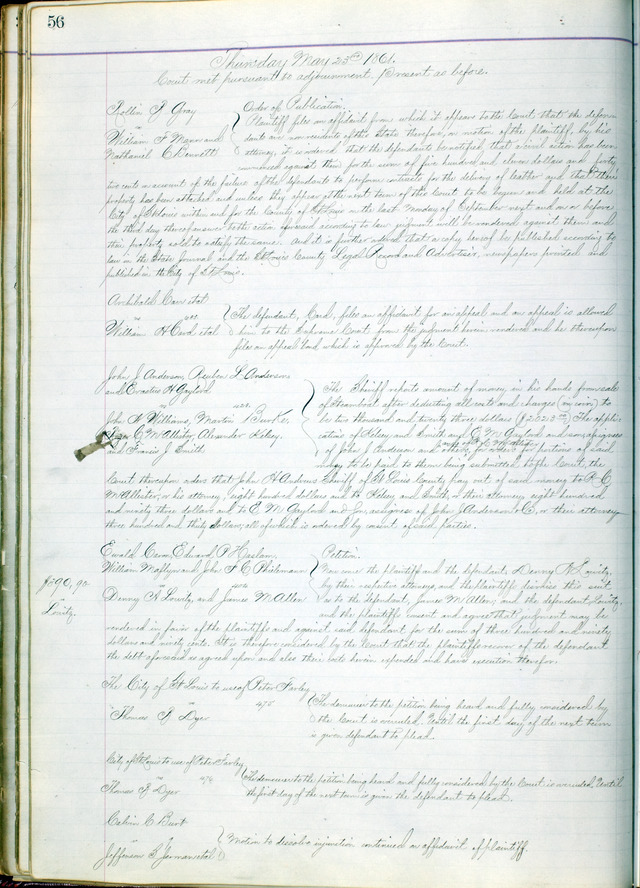 56
Thursday May 23rd 1861.
Court met pursuant to adjournment. Present as before.
Rollin J Gray
vs
William F Mann and
Nathaniel C Bennett
Order of Publication.
Plaintiff files an affidavit from which it appears to the Court that the defen-
dants are non residents of this State therefore, on motion of the plaintiff, by his
attorney, it is ordered, that the defendants be notified, that a civil action has been
commenced against them for the sum of five hundred and eleven dollars and forty
two cents on account of the failure of the defendants to perform contracts for the delivery of leather and that their
property has been attached and unless they appear at the next term of this Court to be begun and held at the
City of St Louis within and for the County of St Louis on the last Monday of September next and on or before
the third day thereof answer to the action aforesaid according to law judgment will be rendered against them and
their property sold to satisfy the same. And it is further ordered that a copy hereof be published according to
law in the State Journal and the St Louis County Legal Record and Advertiser, newspapers printed and
published in the City of St Louis.
Archibald Carr et al
vs
William H Card et al
The defendant, Card, files an affidavit for an appeal and an appeal is allowed
him to the Supreme Court from the judgment herein rendered and he thereupon
files an appeal bond which is approved by the Court.
John J Anderson, Reuben L Anderson
and Erastus H Gaylord
John N Williams, Martin Burke,
C McAllister, Alexander Kelsey,
and Francis J Smith
The Sheriff reports amount of money in his hands from sale
of Steamboat after deducting all costs and charges (in coin) to
be two thousand and twenty three dollars ($2023 00) The applic-
ations of Kelsey and Smith and E. M. Gaylord and son, assignees
of John J Anderson and others, for orders for portions of said
money to be paid to them being submitted to the Court, the
Court thereupon orders that John H Andrews Sheriff of St Louis County pay out of said money to R C
McAllister, or his attorney, eight hundred dollars and to Kelsey and Smith, or their attorney eight hundred
and ninety three dollars and to E M Gaylord and Son, assignees of John J Anderson & Co, or their attorney
three hundred and thirty dollars; all of which is ordered by consent of said Parties.
$390,90
Lowitz.
William Maflyn and John F C
Denny A Lowitz and James M Allen
Petition.
Now come the plaintiffs and the defendant, Denny A Lowitz,
by their respective attorneys, and the plaintiffs dismiss this suit
as to the defendant, James M Allen; and the defendant, Lowitz,
and the plaintiffs consent and agree that judgment may be
rendered in favor of the plaintiffs and against said defendant for the sum of three hundred and ninety
dollars and ninety cents. It is therefore considered by the Court that the plaintiffs recover of the defendant
the debt aforesaid so agreed upon and also their costs herein expended and have execution therefor.
The City of St Louis to use of Peter Farley
475
Thomas R Dyer
The demurrer to the petition being heard and fully considered by
the Court is overruled. Until the first day of the next term
is given defendant to plead.
City of St Louis to use of Peter Farley
476
Thomas R Dyer
The demurrer to the petition being heard and fully considered by the Court is overruled. Until
the first day of the next term is given the defendant to plead.
Calvin C Burt
Jefferson T Jarman et al
Motion to dissolve injunction continued on affidavit of plaintiff.